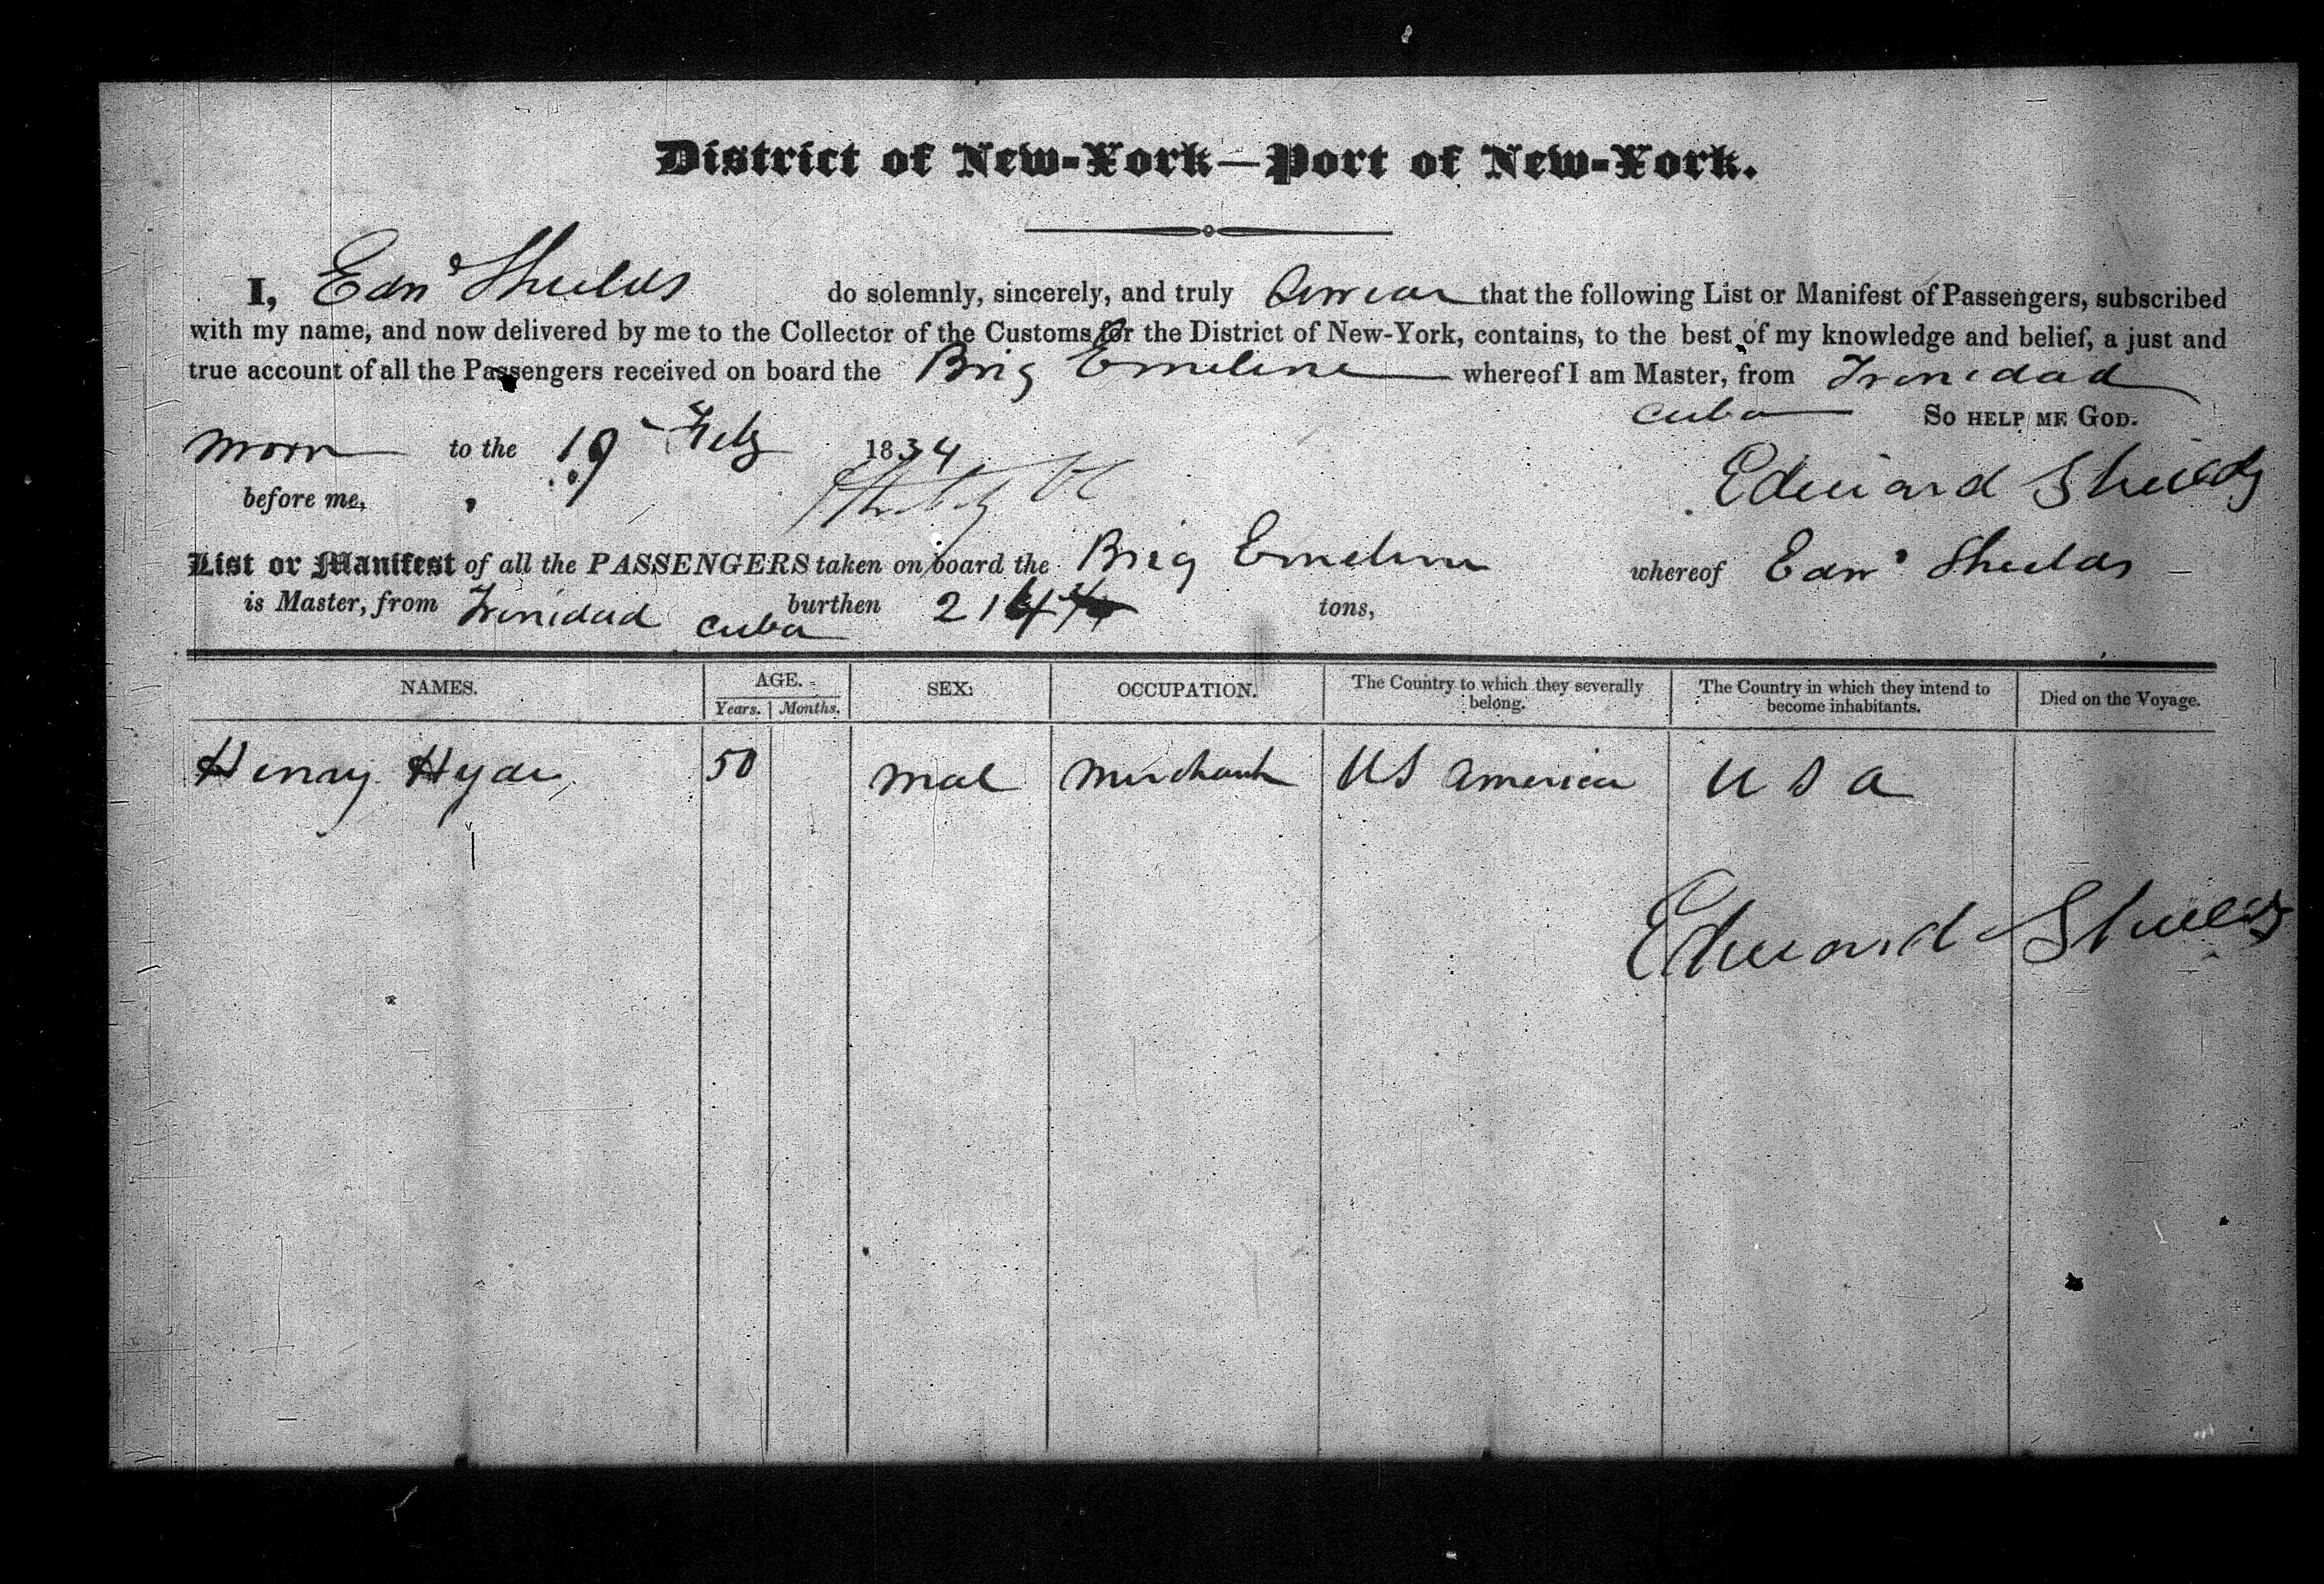 District of New-York—Port of New-York.
I, Edwd Shields do solemnly, sincerely, and truly swear that the following List or Manifest of Passengers, subscribed
with my name, and now delivered by me to the Collector of the Customs for the District of New-York, contains, to the best of my knowledge and belief, a just and
true account of all the Passengers received on board the Brig Emeline whereof I am Master, from Trinidad
Cuba So HELP ME GOD.
Sworn to the 19 Feby 1834
Edward Shields
before me,
List or Manifest of all the PASSENGERS taken on board the Brig Emeline whereof Edwd Shields
is Master, from Trinidad Cuba burthen tons,
NAMES. AGE. Years. Months. SEX. OCCUPATION. The Country to which they severally belong. The Country in which they intend to become inhabitants. Died on the Voyage.
Henry Hyde 50 Mal Merchant US America U S A
Edward Shields